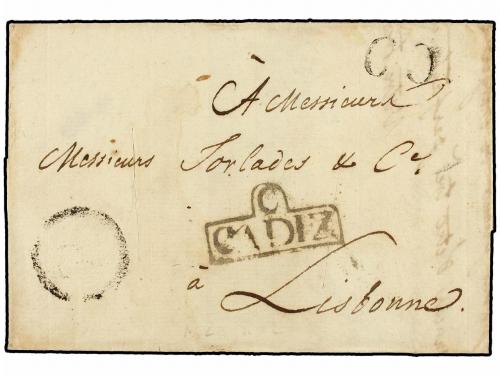 À Messieurs
Messieurs Torlades & Ce.
C
CADIZ
à Lisbonne.